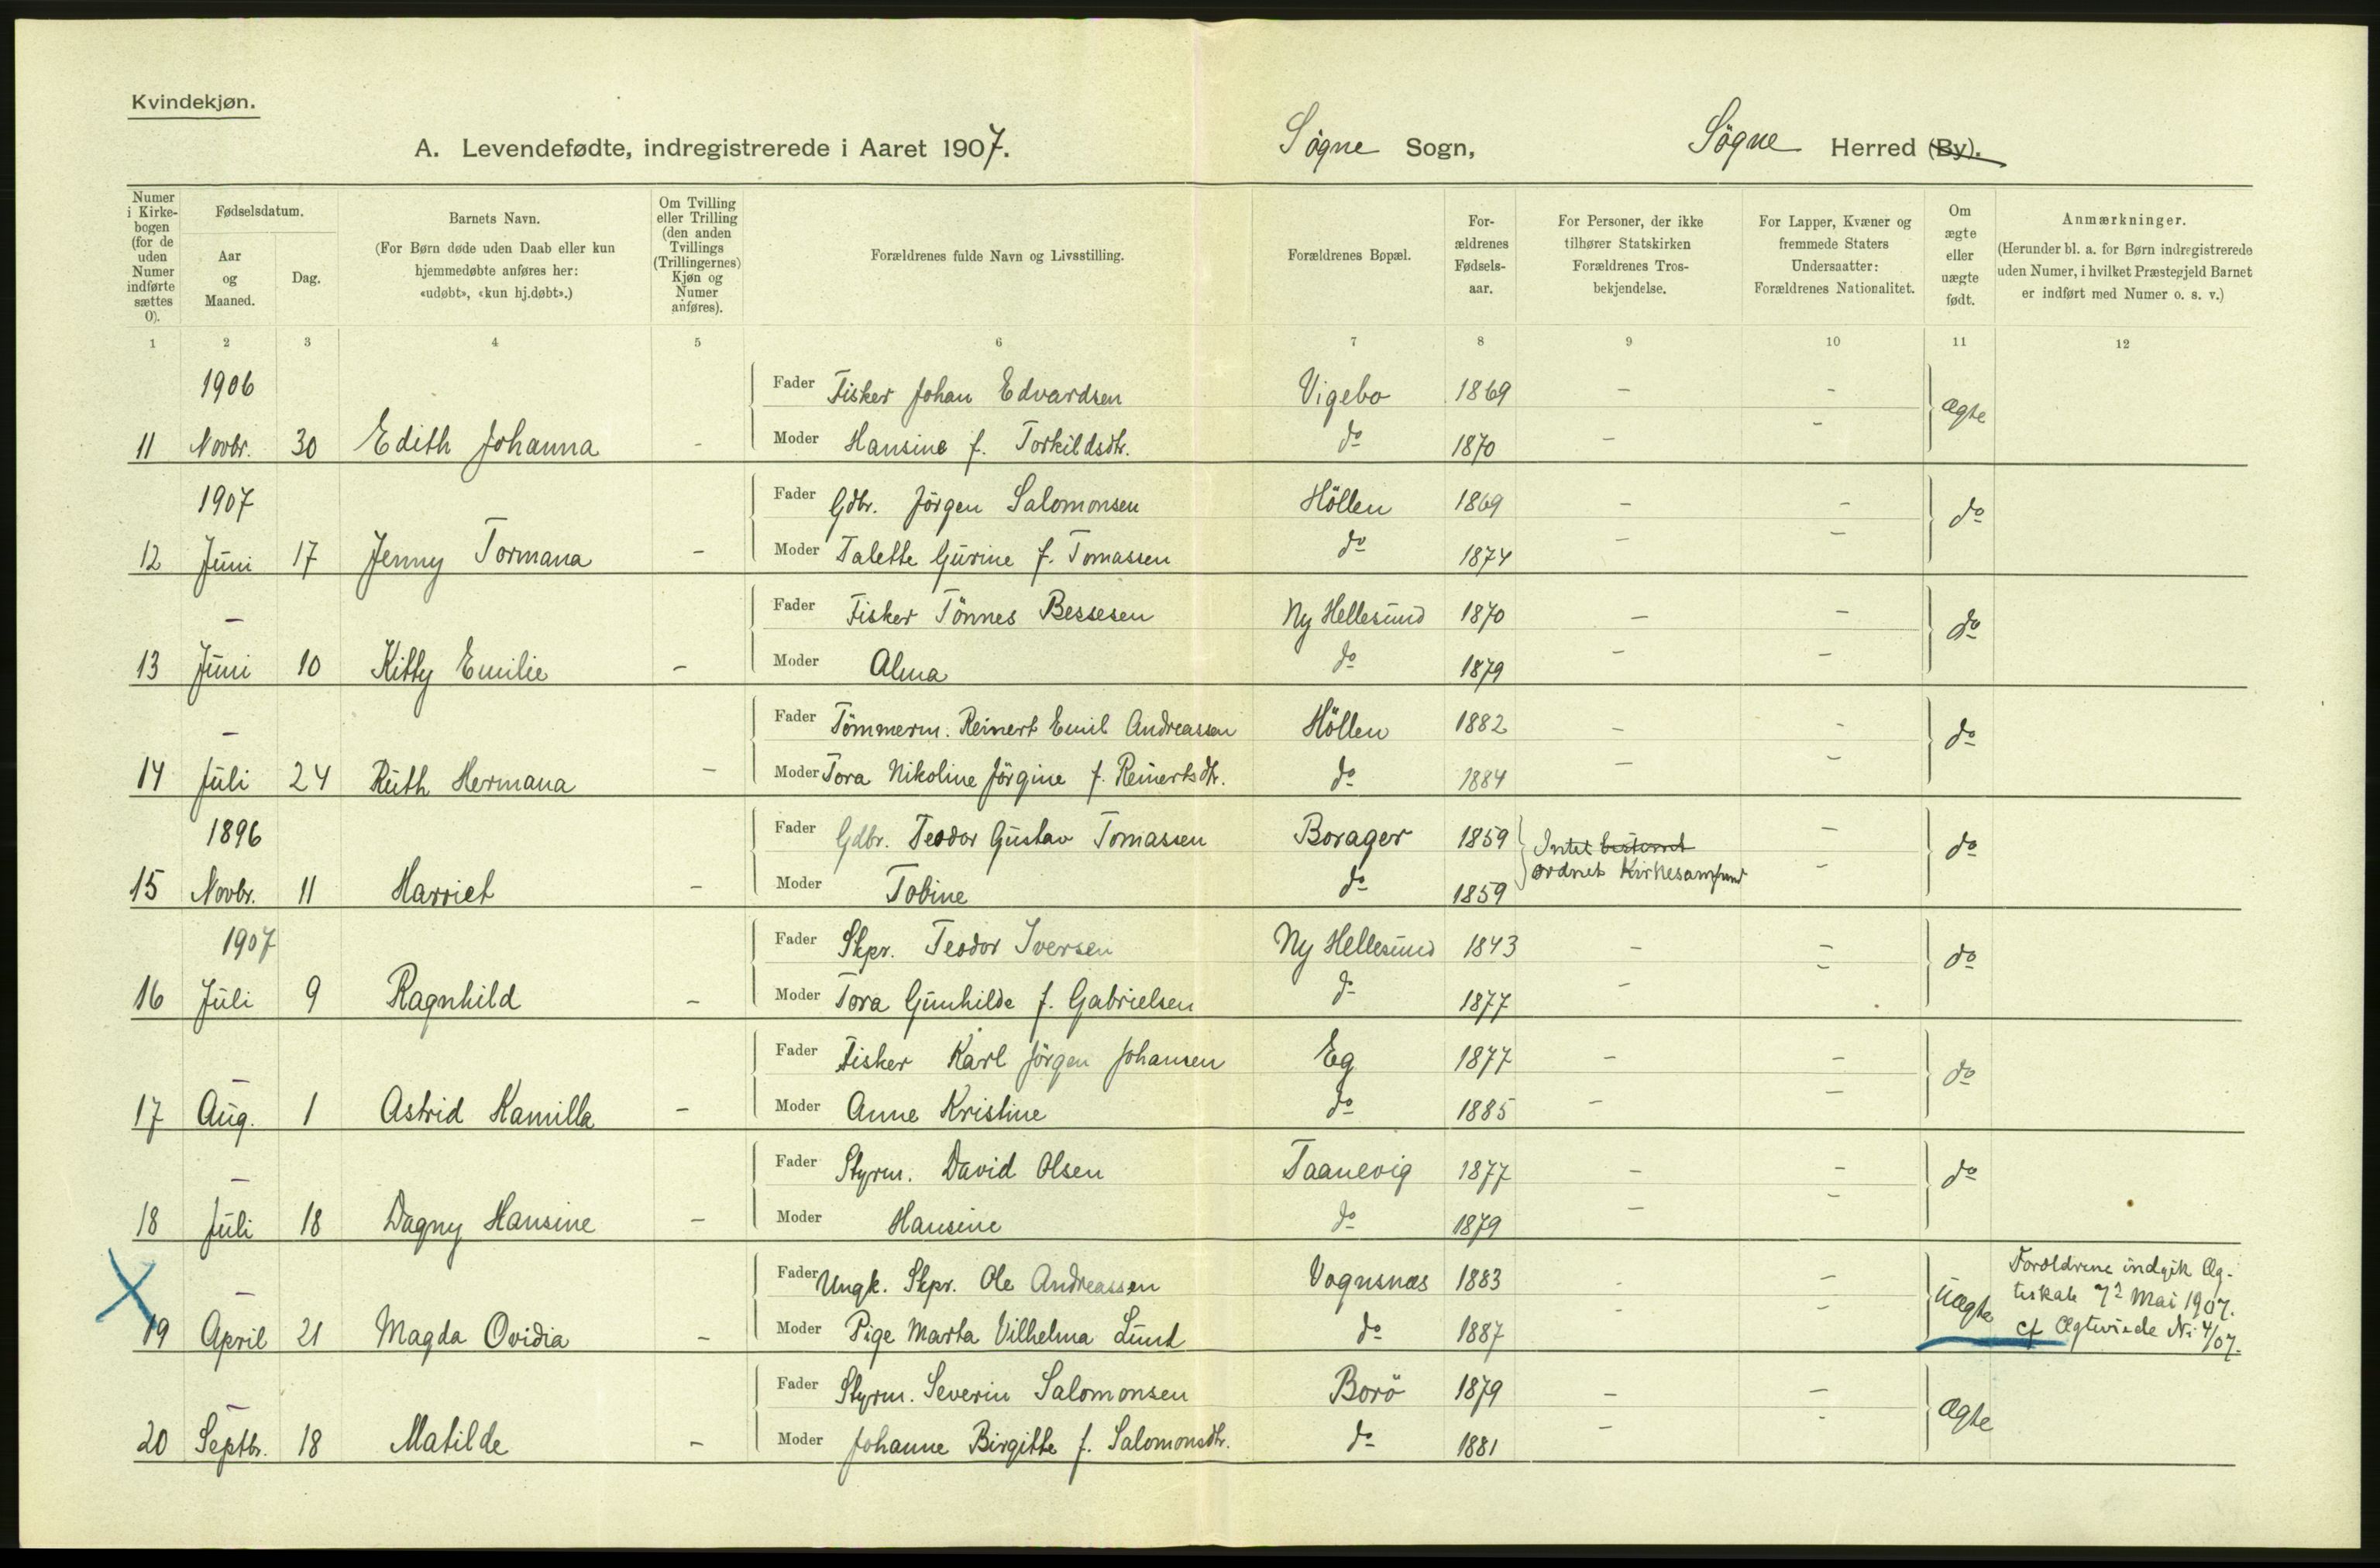 Kvindekjøn.
A. Levendefødte, indregistrerede i Aaret 1907.
Søgne Sogn, Søgne Herred (By).
Numer i Kirkebogen (for de uden Numer indførte sættes 0).
Fødselsdatum.
Aar og Maaned.
Dag.
Barnets Navn.
(For Børn døde uden Daab eller kun hjemmedøbte anføres her: «udøbt», «kun hj.døbt».)
Om Tvilling eller Trilling (den anden Tvillings (Trillingernes) Kjøn og Numer anføres).
Forældrenes fulde Navn og Livsstilling.
Forældrenes Bopæl.
For-ældrenes Fødsels-aar.
For Personer, der ikke tilhører Statskirken Forældrenes Tros-bekjendelse.
For Lapper, Kvæner og fremmede Staters Undersaatter: Forældrenes Nationalitet.
Om ægte eller uægte født.
Anmærkninger.
(Herunder bl. a. for Børn indregistrerede uden Numer, i hvilket Præstegjeld Barnet er indført med Numer o. s. v.)
1 2 3 4 5 6 7 8 9 10 11 12
1906 Fader Fisker Johan Edvardsen Vigebo 1869 – – Ægte
11 Novbr. 30 Edith Johanna – Moder Hansine f. Torkildsdtr. do 1870 – –
1907 Fader Gdbr. Jörgen Salomonsen Höllen 1869 – – do
12 Juni 17 Jenny Tormana – Moder Talette Gurine f. Tomassen do 1874 – –
– Fader Fisker Tönnes Bessesen Ny Hellesund 1870 – – do
13 Juni 10 Kitty Emilie – Moder Alma do 1879 – –
– Fader Tömmerm. Reinert Emil Andreassen Höllen 1882 – – do
14 Juli 24 Ruth Hermana – Moder Tora Nikoline Jörgine f. Reinertsdtr. do 1884 – –
1896 Fader Gdbr. Teodor Gustav Tomassen Borager 1859 Intet bestemt – do
ordnet Kirkesamfund
15 Novbr. 11 Harriet – Moder Tobine do 1859 –
1907 Fader Skpr. Teodor Iversen Ny Hellesund 1843 – – do
16 Juli 9 Ragnhild – Moder Tora Gunhilde f. Gabrielsen do 1877 – –
– Fader Fisker Karl Jörgen Johansen Eg 1877 – – do
17 Aug. 1 Astrid Kamilla – Moder Anne Kristine do 1885 – –
– Fader Styrm. David Olsen Taanevig 1877 – – do
18 Juli 18 Dagny Hansine – Moder Hansine do 1879 – –
– Fader Ungk. Skpr. Ole Andreassen Vognsnæs 1883 - – Uægte Foroldrene indgik Æg-
teskab 7de Mai 1907.
X 19 April 21 Magda Ovidia – Moder Pige Marta Vilhelma Lund do 1887 - – cf Ægteviede No 4/07.
– Fader Styrm. Severin Salomonsen Borö 1879 – – Ægte
20 Septbr. 18 Matilde – Moder Johanne Birgitte f. Salomonsdtr. do 1881 – -